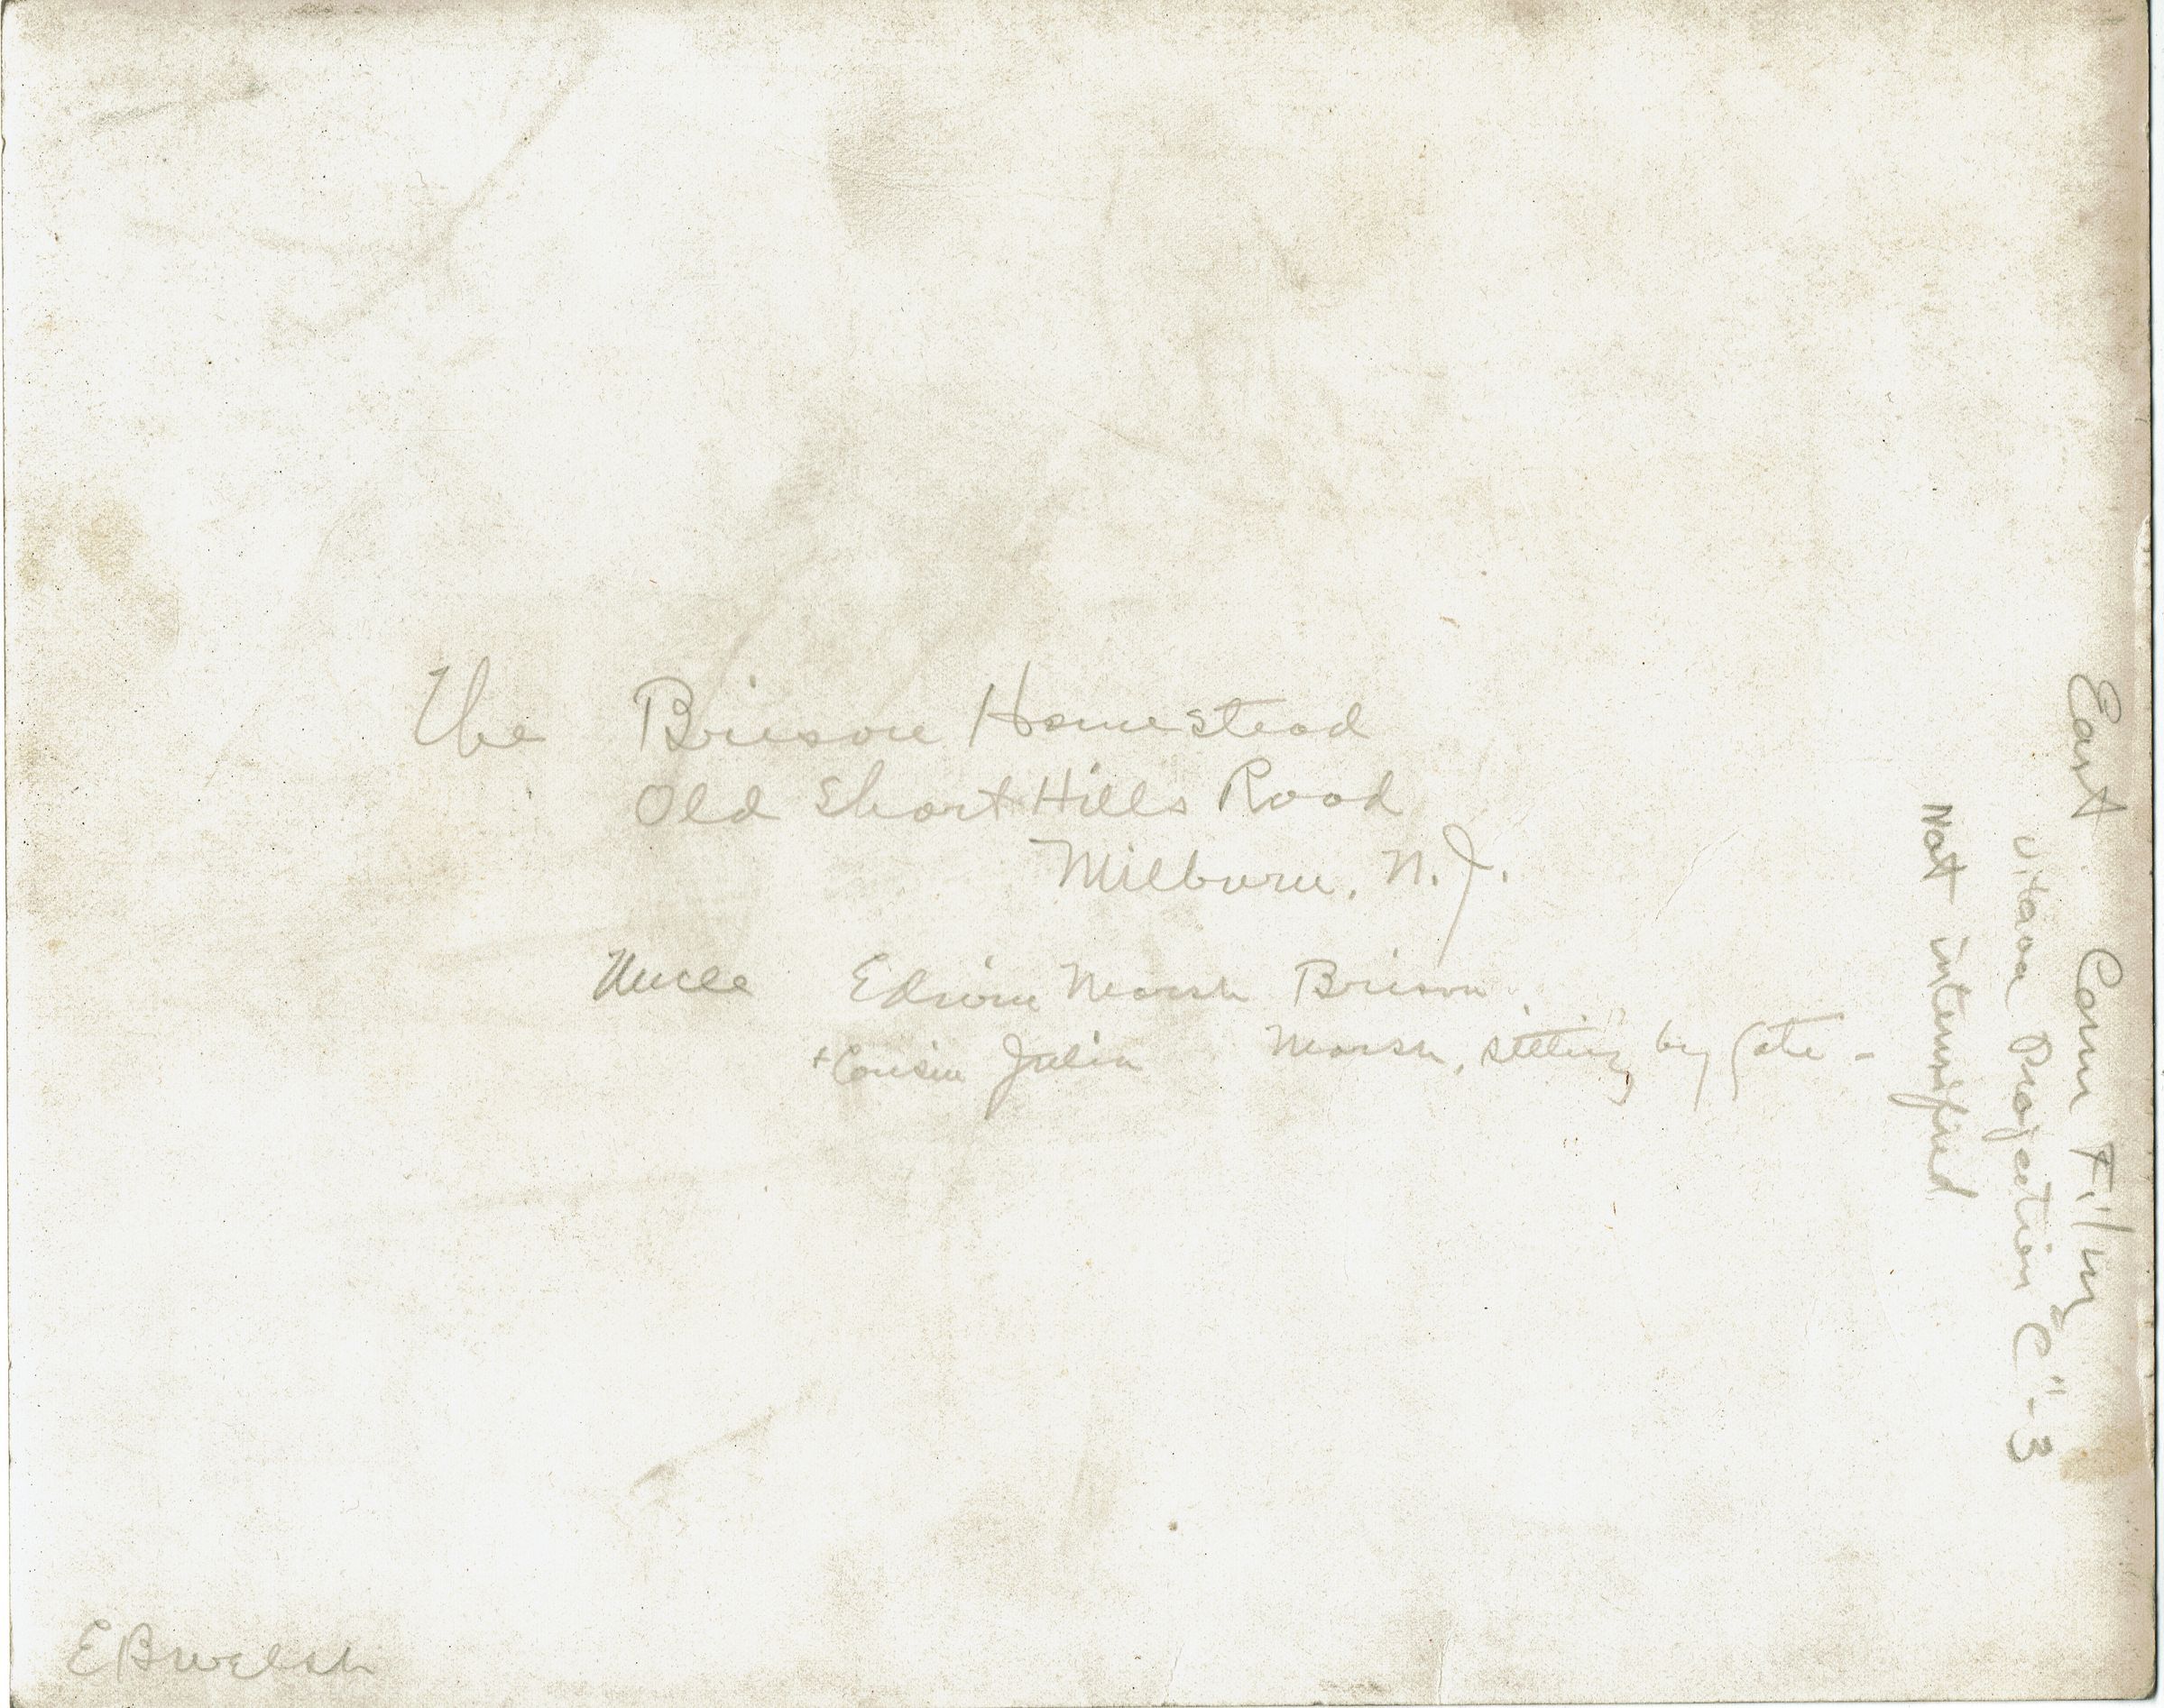 The Brison Homestead
Old Short Hills Road
Milburn, N.J.
Uncle Edwin Marsh Brison
+ Cousin Julia Marsh, sitting by Gate -
East Com Film
Vitava Projection "C"-3
Not intensified
EBWelsh